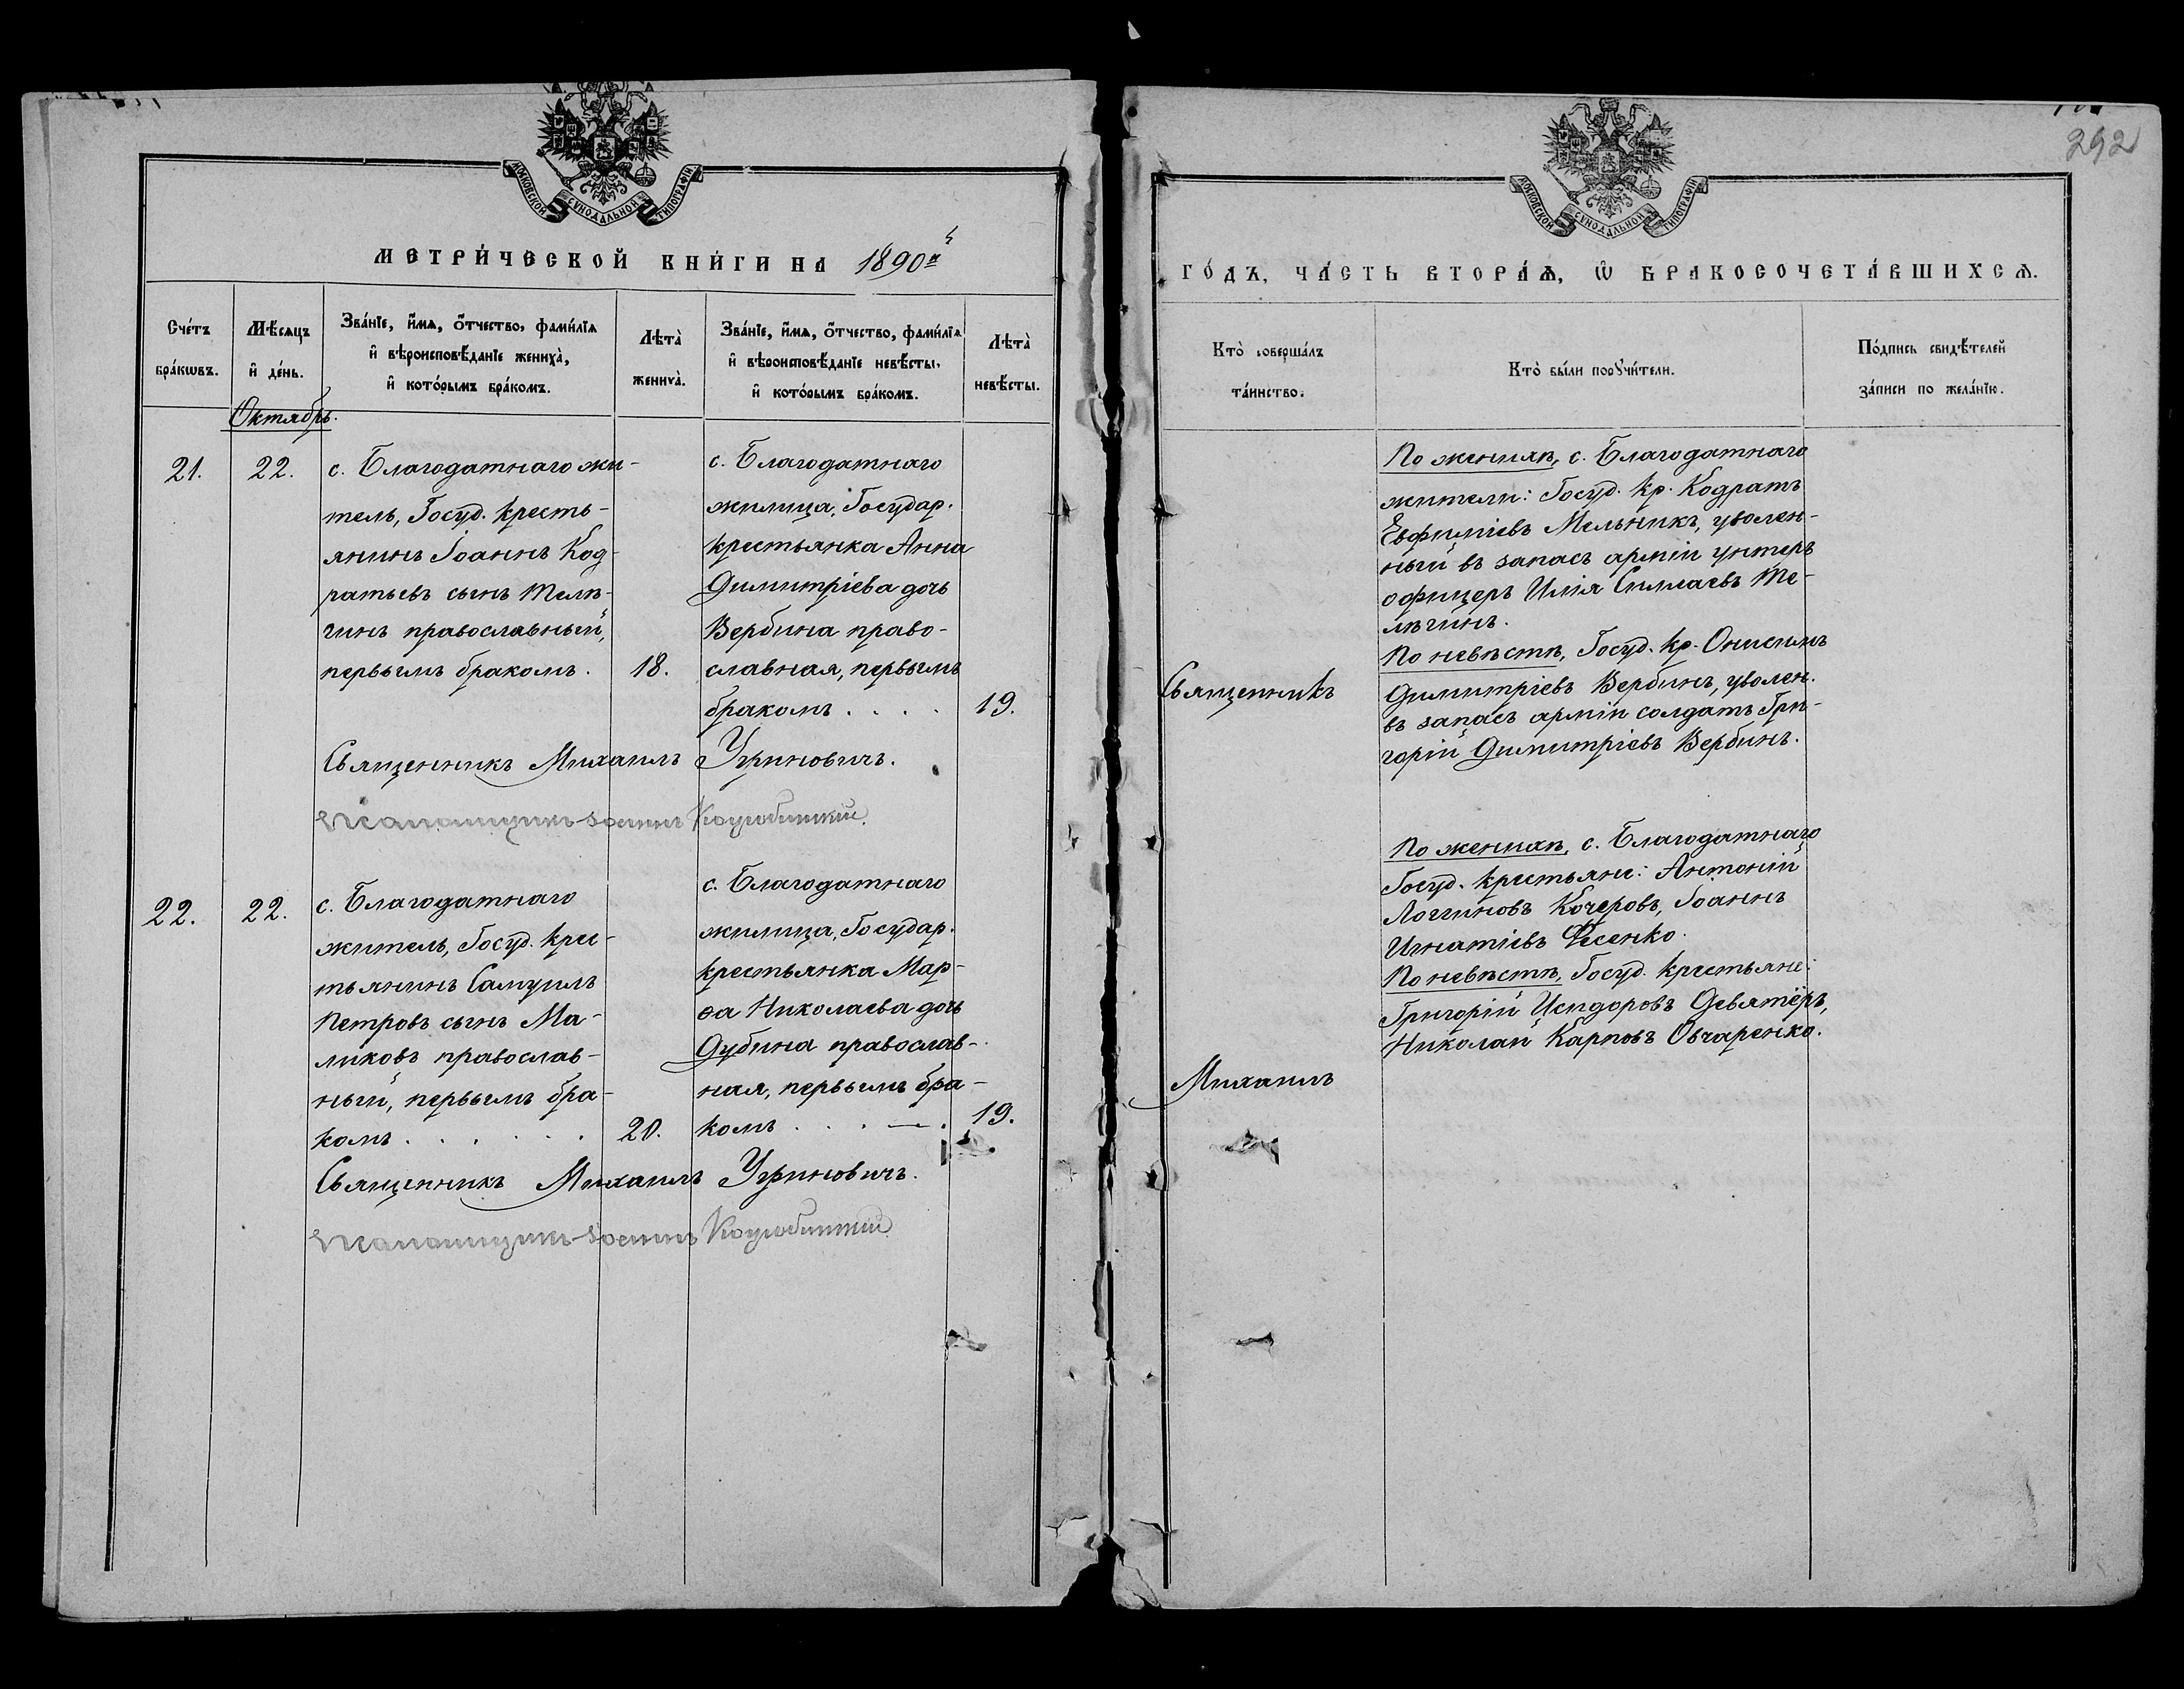 292
МОСКОВСКОЙ СѴНОДАЛЬНОЙ ТИПОГРАФІИ
МЕТРИ́ЧЕСКОЙ КНИ́ГИ НА 1890й
Сче́тъ бра́кѡвъ.
Мѣ́сѧцъ и҆ де́нь.
Зва́нїе, и҆́мѧ, ѻ҆́тчество, фами́лїѧ
и҆ вѣроисповѣ́данїе жениха̀,
и҆ кото́рымъ бра́комъ.
Лѣта̀ жениха̀.
Зва́нїе, и҆́мѧ, ѻ҆́тчество, фами́лїѧ
и҆ вѣроисповѣ́данїе невѣ́сты,
и҆ кото́рымъ бра́комъ.
Лѣта̀ невѣ́сты.
Октябрь.
21.
22.
с. Благодатнаго жи-
тель, Госуд. кресть-
янинъ Іоаннъ Код-
ратьевъ сынъ Мелѣ-
гинъ православный,
первымъ бракомъ.
18.
с. Благодатнаго
жилица, Государ.
крестьянка Анна
Димитріева дочь
Вербина право-
славная, первымъ
бракомъ . . . .
19.
Священникъ Михаилъ Угриновичъ.
Іоаннъ
22.
22.
с. Благодатнаго
житель, Госуд. крес-
тьянинъ Самуилъ
Петровъ сынъ Ма-
ликовъ православ-
ный, первымъ бра-
комъ . . . . . .
20.
с. Благодатнаго
жилица, Государ.
крестьянка Мар-
ѳа Николаева дочь
Дубина православ-
ная, первымъ бра-
комъ . . . — .
19.
Священникъ Михаилъ Угриновичъ.
Іоаннъ
МОСКОВСКОЙ СѴНОДАЛЬНОЙ ТИПОГРАФІИ
ГО́ДЪ, ЧА́СТЬ ВТОРА́Ѧ, Ѡ҆ БРАКОСОЧЕТА́ВШИХСѦ.
Кто̀ соверша́лъ
та́инство.
Кто̀ бы́ли порꙋчи́тели.
По́дпись свидѣ́телей
за́писи по жела́нїю.
По женихѣ, с. Благодатнаго
жители: Госуд. кр. Кодратъ
Евфиміевъ Мельникъ, уволен-
ный въ запасъ арміи унтеръ
офицеръ Илія Силлаевъ Ме-
лѣгинъ.
По невѣстѣ, Госуд. кр. Онисимъ
Димитріевъ Вербинъ, уволен.
въ запасъ арміи солдатъ Гри-
горій Димитріевъ Вербинъ.
Священникъ
По женихѣ, с. Благодатнаго
Госуд. крестьяне: Антоній
Логгиновъ Кочеровъ, Іоаннъ
Игнатіевъ Фесенко.
По невѣстѣ, Госуд. крестьяне:
Григорій Исидоровъ Девятёръ,
Николай Карповъ Овчаренко.
Михаилъ